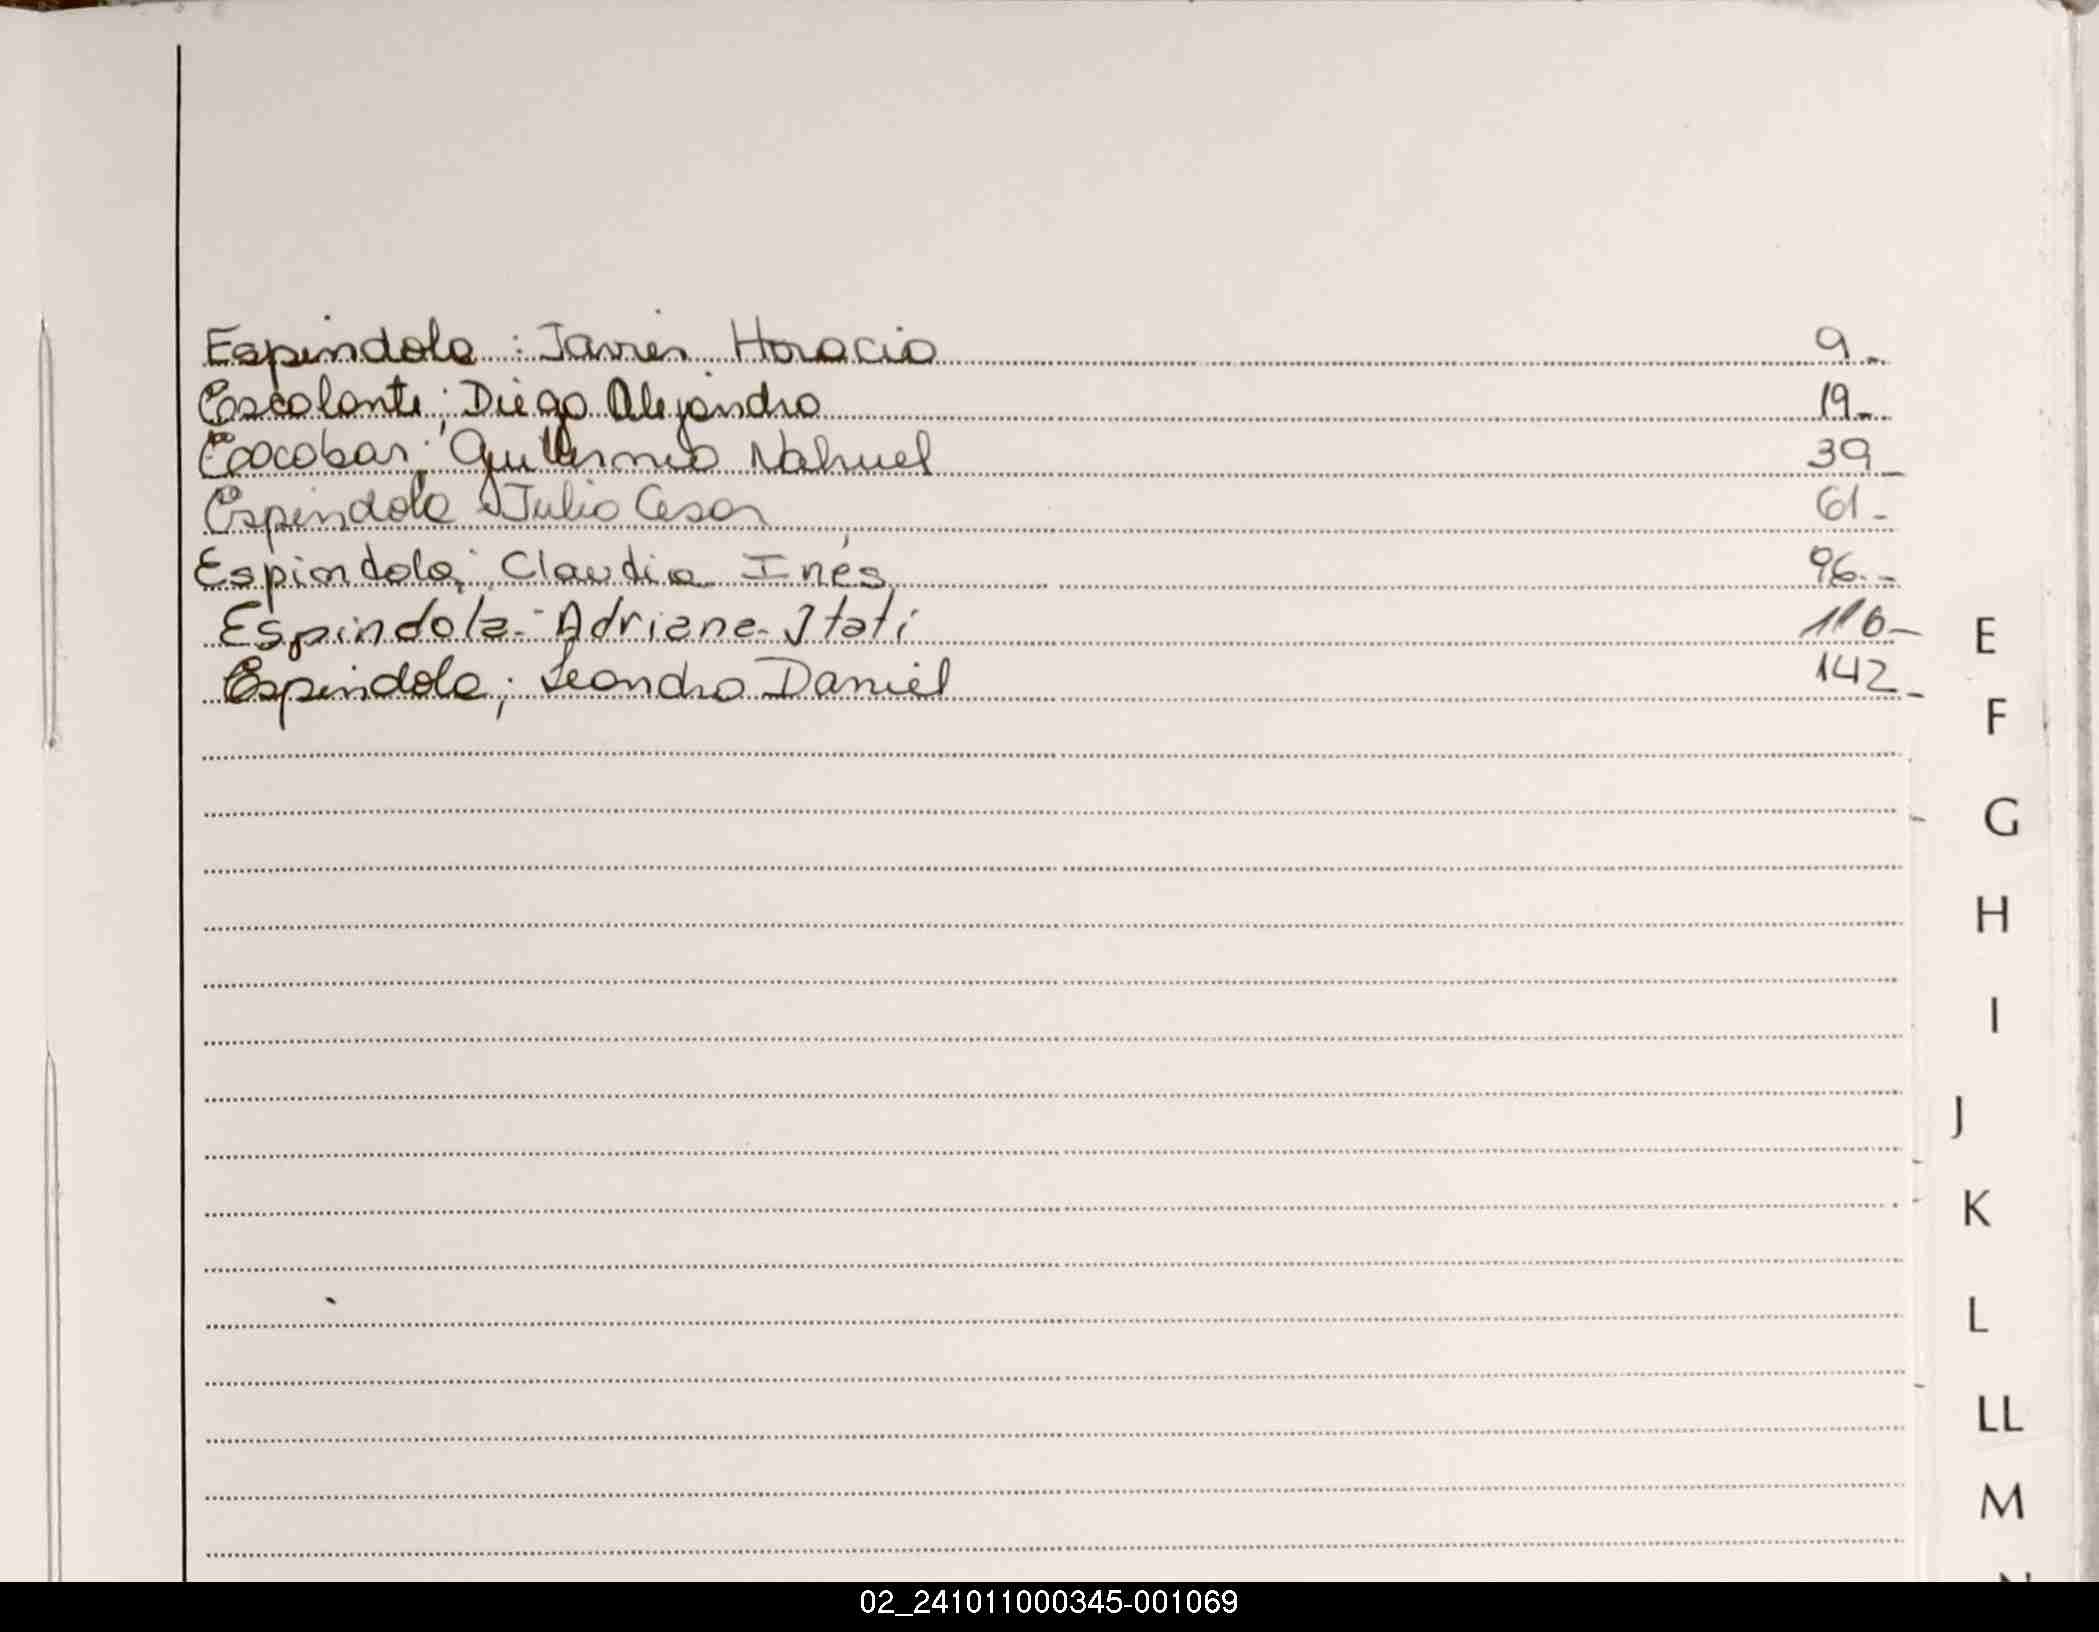 Espindola : Javier Horacio 9-
Escalante ; Diego Alejandro 19-
Escobar ; Guillermo Nahuel 39-
Espindola Julio Cesar 61-
Espindola ; Claudia Inés 96.-
Espindola - Adriana - Itatí 116-
Espindola ; Leandro Daniel 142-
E
F
G
H
I
J
K
L
LL
M
02_241011000345-001069